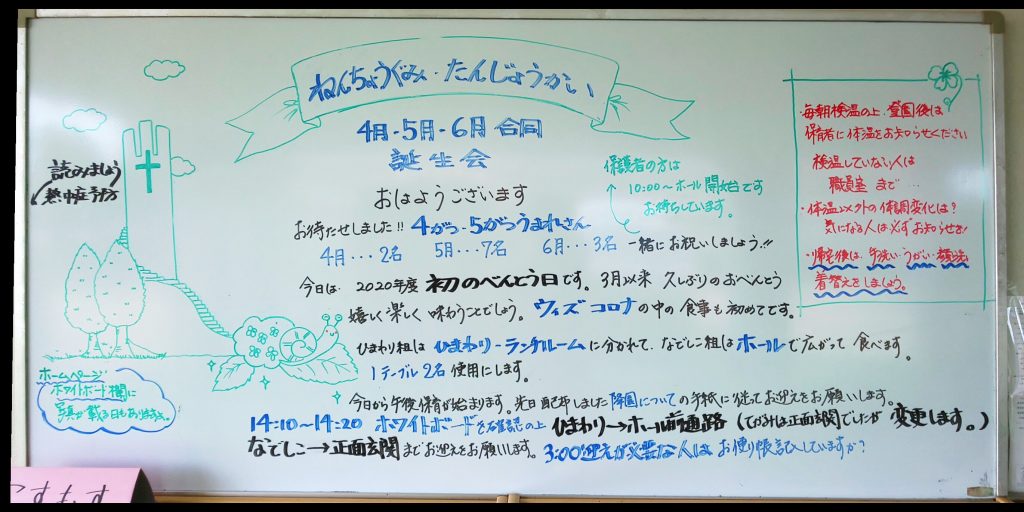 ねんちょうぐみ・たんじょうかい
4月・5月・6月 合同
誕生会
おはようございます
お待たせしました!! 4がつ・5がつうまれさん
4月・・・2名 5月・・・7名 6月・・・3名 一緒にお祝いしましょう!!
保護者の方は
10:00〜ホール開始です
お待ちしています。
今日は、2020年度 初のべんとう日です。3月以来 久しぶりのおべんとう
嬉しく楽しく味わうことでしょう。ウィズコロナの中の食事も初めてです。
ひまわり組は ひまわり-ランチルームに分かれて、なでしこ組はホールで広がって食べます。
1テーブル2名使用にします。
今日から午後保育が始まります。先日配布しました降園についての手紙に従ってお迎えをお願いします。
14:10〜14:20 ホワイトボードを確認の上 ひまわり→ホール前通路 (てがみは正面玄関でしたが 変更します。)
なでしこ→正面玄関までお迎えをお願いします。3:00迎えが必要な人は お便り帳記入していますか?
読みましょう
熱中症予防
ホームページ
ホワイトボード欄に
写真が載る日もあります。
・毎朝検温の上、登園後は
保育者に体温をお知らせください
検温していない人は
職員室まで…
・体温以外の体調変化は?
気になる人は必ずお知らせを!!
・帰宅後は、手洗い・うがい・洗
着替えをしましょう。
こすもす